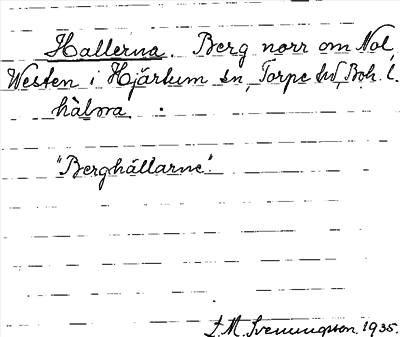 Hallerna. Berg norr om Nol,
Westen i Hjärtum sn, Torpe hd, Boh. l.
hàlṇa.
"Berghällarne".
S. M. Svenungsson. 1935.